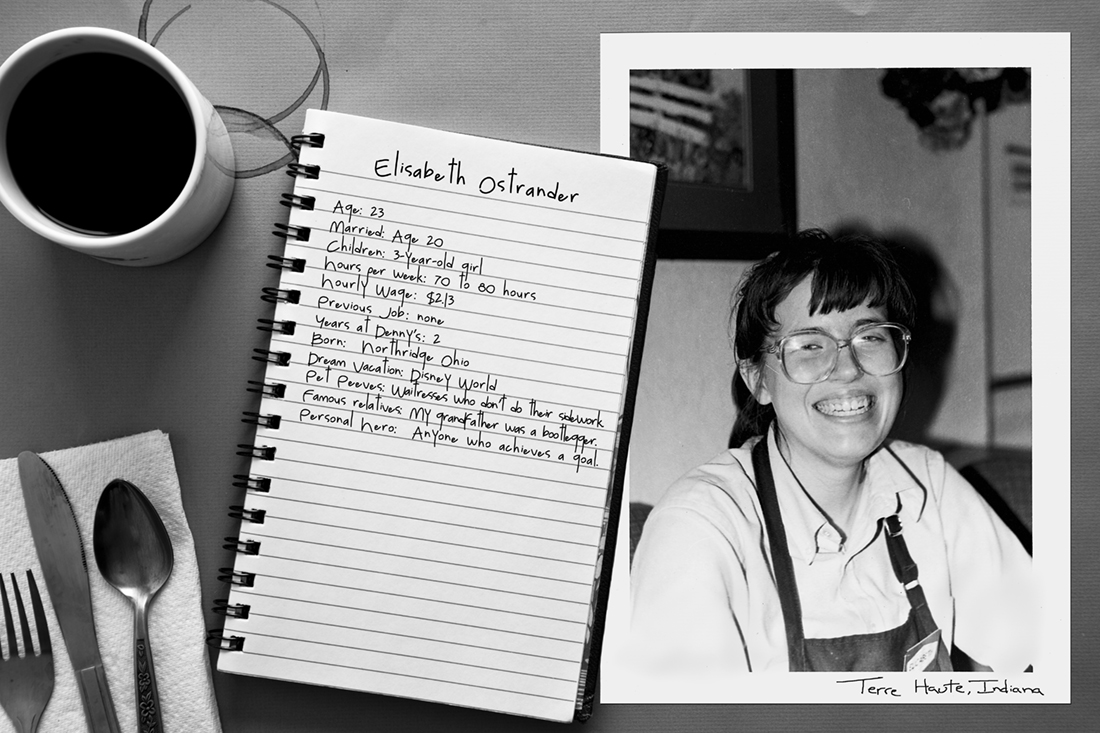 Elisabeth Ostrander
Age: 23
Married: Age 20
Children: 3-Year-old girl
hours per week: 70 to 80 hours
hourly Wage: $2.13
Previous Job: none
Years at Denny's: 2
Born: Northridge Ohio
Dream Vacation: Disney World
Pet Peeves: Waitresses who don't do their sidework
Famous relatives: My grandfather was a bootlegger.
Personal hero: Anyone who achieves a goal.
Terre Haute, Indiana